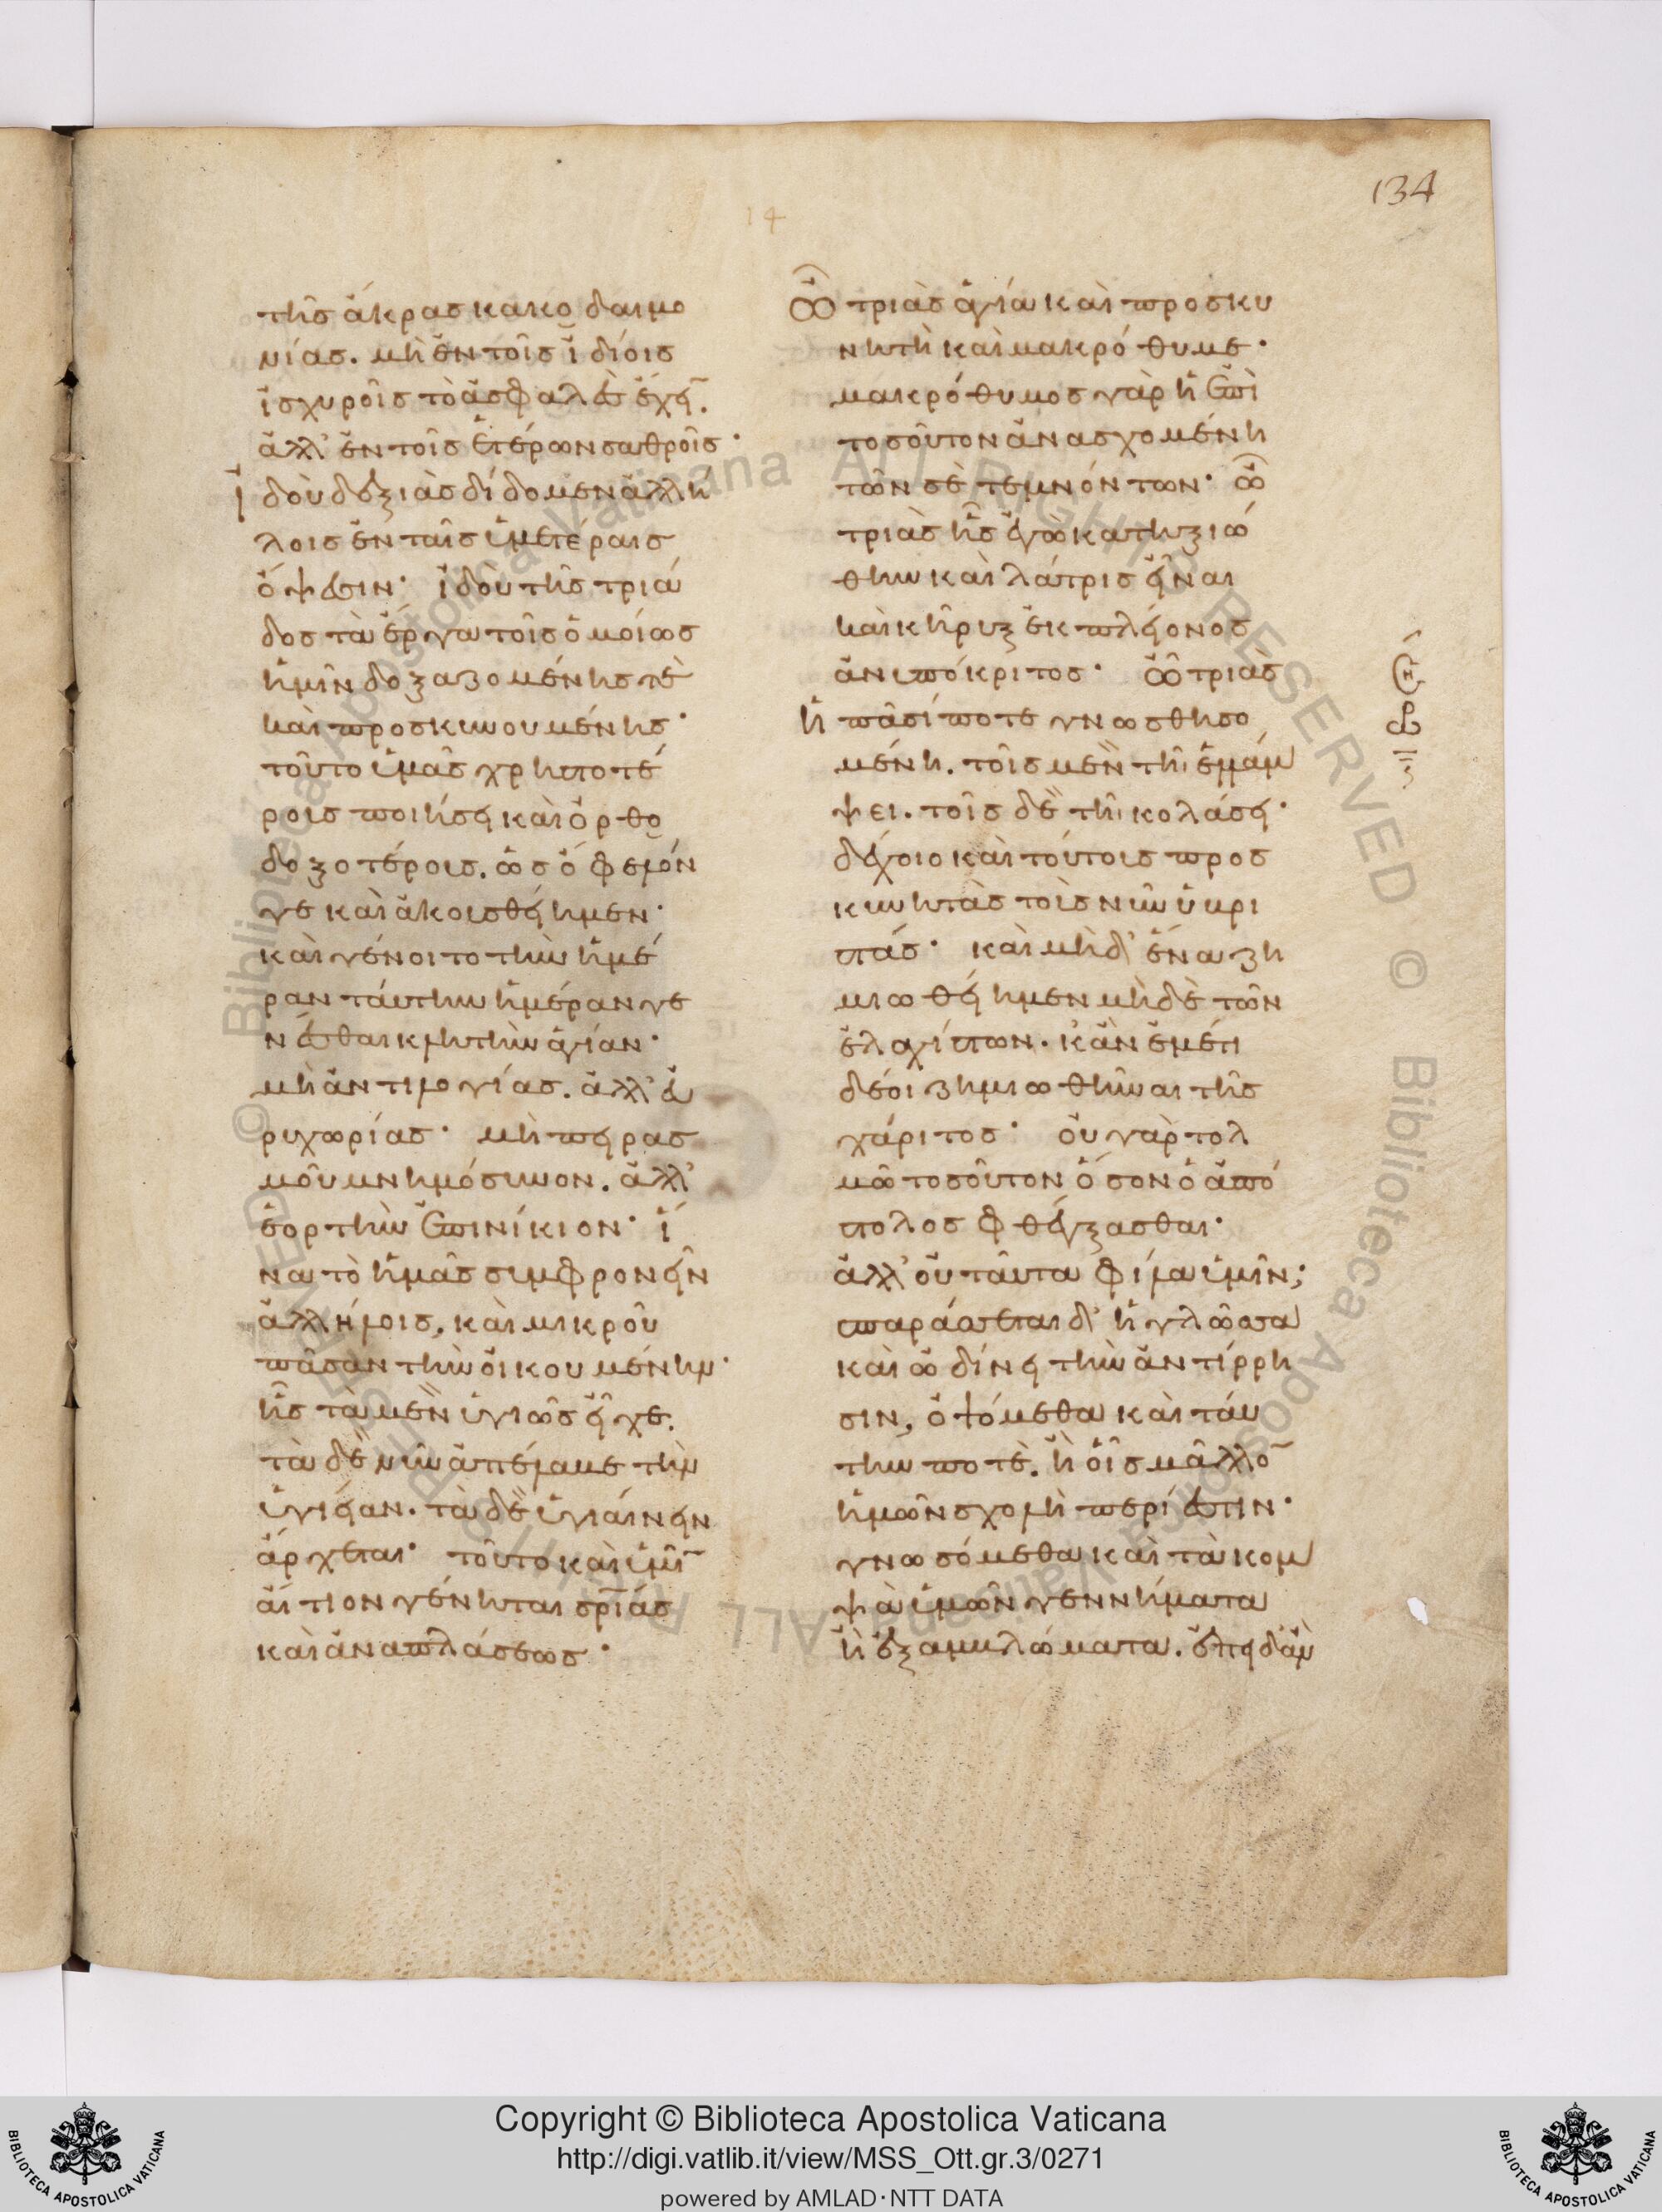 134
14
τῆς ἄκρας κακοδαιμο
νίας. μὴ ἐν τοῖς ἰδίοις
ἰσχυροῖς τὸ ἀσφαλὲς ἔχει(ν).
ἀλλ' ἐν τοῖς ἑτέρων σαθροῖς·
ἰδοὺ δεξιὰς δίδομεν ἀλλή
λοις ἐν ταῖς ὑμετέραις
ὄψεσιν· ἰδοὺ τῆς τριά
δος τὰ ἔργα τοῖς ὁμοίως
ἡμῖν δοξαζομένης τὲ
καὶ προσκυνουμένης·
τοῦτο ὑμᾶς χρηστοτέ
ροις ποιήσει καὶ ὀρθο
δοξοτέροις. ὡς ὄφελόν
γε καὶ ἀκουσθείημεν·
καὶ γένοιτο τὴν ἡμέ
ραν ταύτην ἡμέραν γε
νέσθαι κλητὴν ἁγίαν·
μὴ ἀντιλογίας. ἀλλ' εὐ
ρυχωρίας· μὴ πειρας
μοῦ μνημόσυνον. ἀλλ'
ἑορτὴν ἐπινίκιον· ἵ
να τὸ ἡμᾶς συμφρονεῖν
ἀλλήλοις, καὶ μικροῦ
πᾶσαν τὴν οἰκουμένην·
ἧς τὰ μὲν ὑγιῶς εἶχε.
τὰ δὲ νῦν ἀπέλαβε τὴν
ὑγιείαν. τὰ δὲ ὑγιαίνειν
ἄρχεται· τοῦτο καὶ ὑμῖ(ν)
αἴτιον γένηται σ(ωτη)ρίας
καὶ ἀναπλάσεως·
Ὦ τριὰς ἁγία καὶ προσκυ
νητὴ καὶ μακρόθυμε·
μακρόθυμος γὰρ ἡ ἐπὶ
τοσοῦτον ἀνασχομένη
τῶν σὲ τεμνόντων· ὦ
τριὰς ἧς ἐγὼ κατηξιώ
θην καὶ λάτρις εἶναι
καὶ κῆρυξ ἐκ πλείονος
ἀνυπόκριτος· ὦ τριὰς
ἡ πᾶσί ποτε γνωσθησο
μένη. τοῖς μὲν τῆι ἐλλάμ
ψει. τοῖς δὲ τῆι κολάσει·
δέχοιο καὶ τούτοις προς
κυνητὰς τοὶς νῦν ὑβρι
στάς· καὶ μὴδ' ἕνα ζη
μιωθείημεν μὴδὲ τῶν
ἐλαχίστων. κἂν ἐμέ τι
δέοι ζημιωθῆναι τῆς
χάριτος· οὐ γὰρ τολ
μῶ τοσοῦτον ὅσον ὁ ἀπό
στολος φθέγξασθαι·
ἀλλ' οὐ ταῦτα φίλα ὑμῖν;
σπαράσσεται δ' ἡ γλῶσσα
καὶ ὠδίνει τὴν ἀντίρρη
σιν, ὀψόμεθα καὶ ταύ
την ποτὲ. ἢ οἷς μᾶλλο(ν)
ἡμῶν σχολὴ περίεστιν·
γνωσόμεθα καὶ τὰ κομ
ψὰ ὑμῶν γεννήματα
ἢ ἐξαμβλώματα. ἔπειδ' ἂν
Copyright © Biblioteca Apostolica Vaticana
http://digi.vatlib.it/view/MSS_Ott.gr.3/0271
powered by AMLAD·NTT DATA